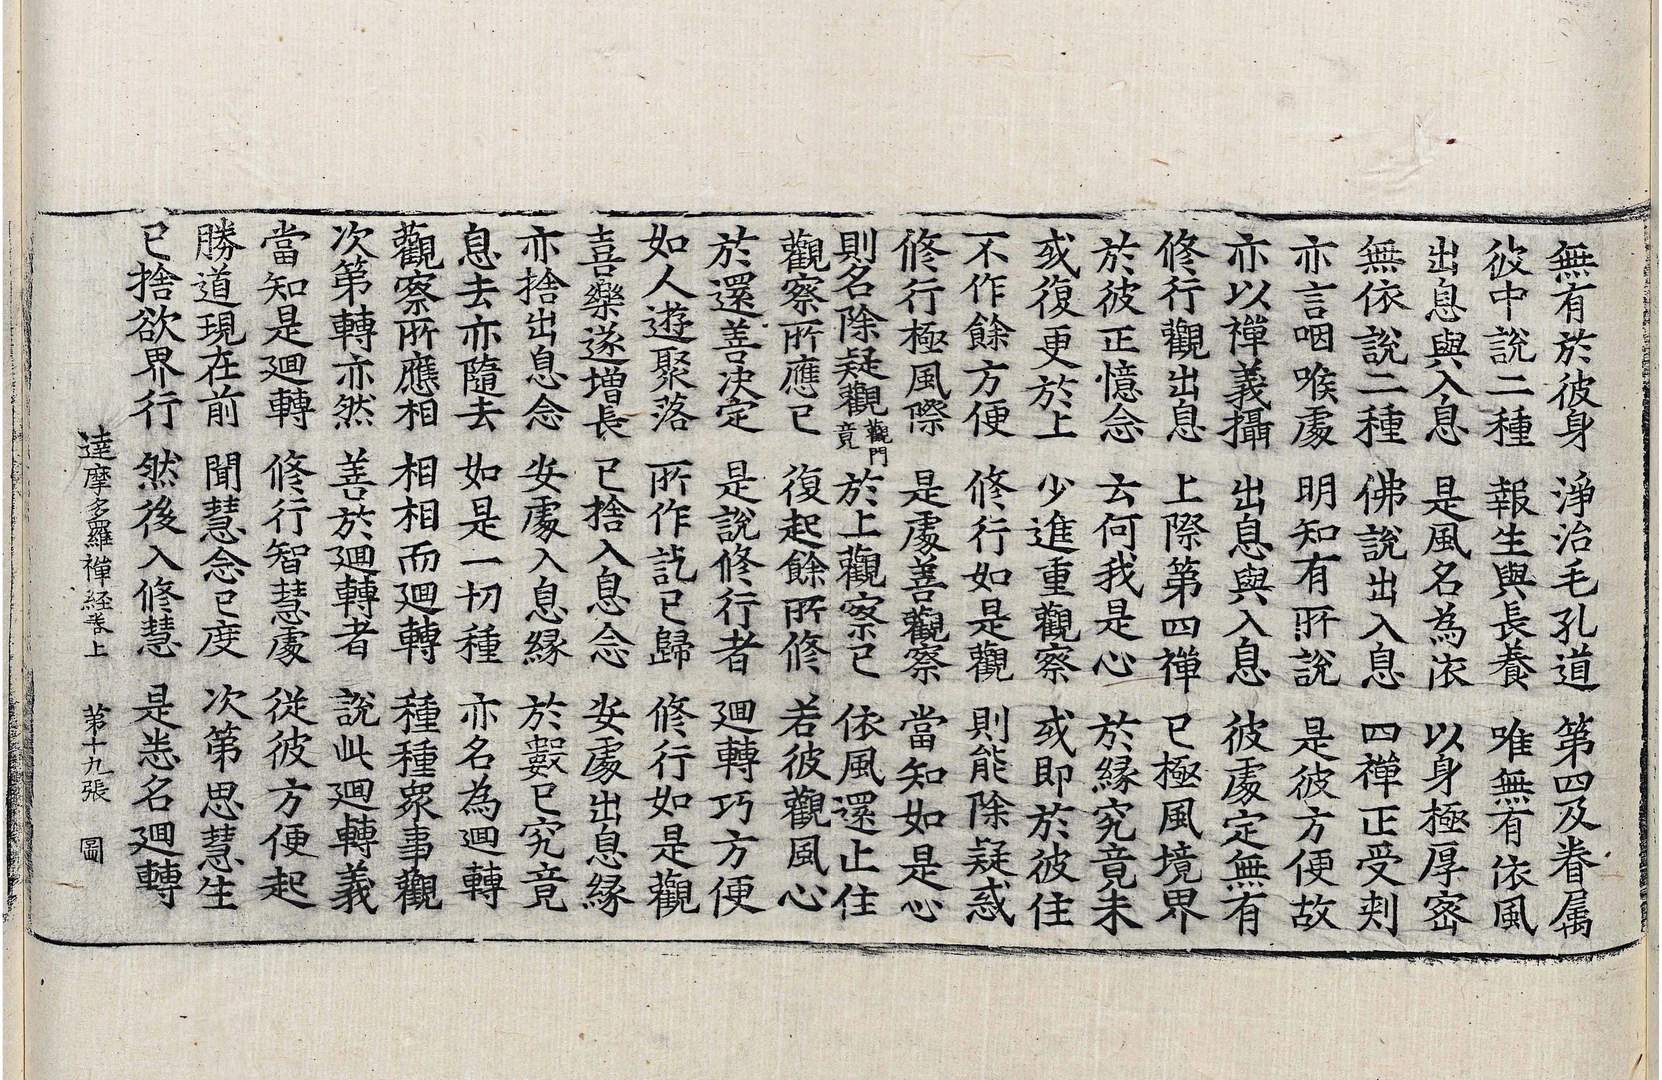 無有於彼身　淨治毛孔道　第四及眷属
彼中說二種　報生與長養　唯無有依風
出息與入息　是風名為依　以身極厚宻
無依說二種　佛說出入息　四禪正受刾
亦言咽喉處　明知有所說　是彼方便故
亦以禪義攝　出息與入息　彼處定無有
修行觀出息　上際第四禪　已極風境界
於彼正憶念　云何我是心　於緣究竟未
或復更於上　少進重觀察　或即於彼住
不作餘方便　修行如是觀　則能除疑惑
修行極風際　是處善觀察　當知如是心
則名除疑觀觀門竟　於上觀察已　依風還止住
觀察所應已　復起餘所修　若彼觀風心
於還善決定　是說修行者　廻轉巧方便
如人遊聚落　所作訖已歸　修行如是觀
喜樂遂增長　已捨入息念　安處出息緣
亦捨出息念　安處入息緣　於數已究竟
息去亦隨去　如是一切種　亦名為廻轉
觀察所應相　相相而廻轉　種種眾事觀
次第轉亦然　善於廻轉者　說此廻轉義
當知是廻轉　修行智慧處　從彼方便起
勝道現在前　聞慧念已度　次第思慧生
已捨欲界行　然後入修慧　是悉名廻轉
達摩多羅禪経卷上　第十九張　圖